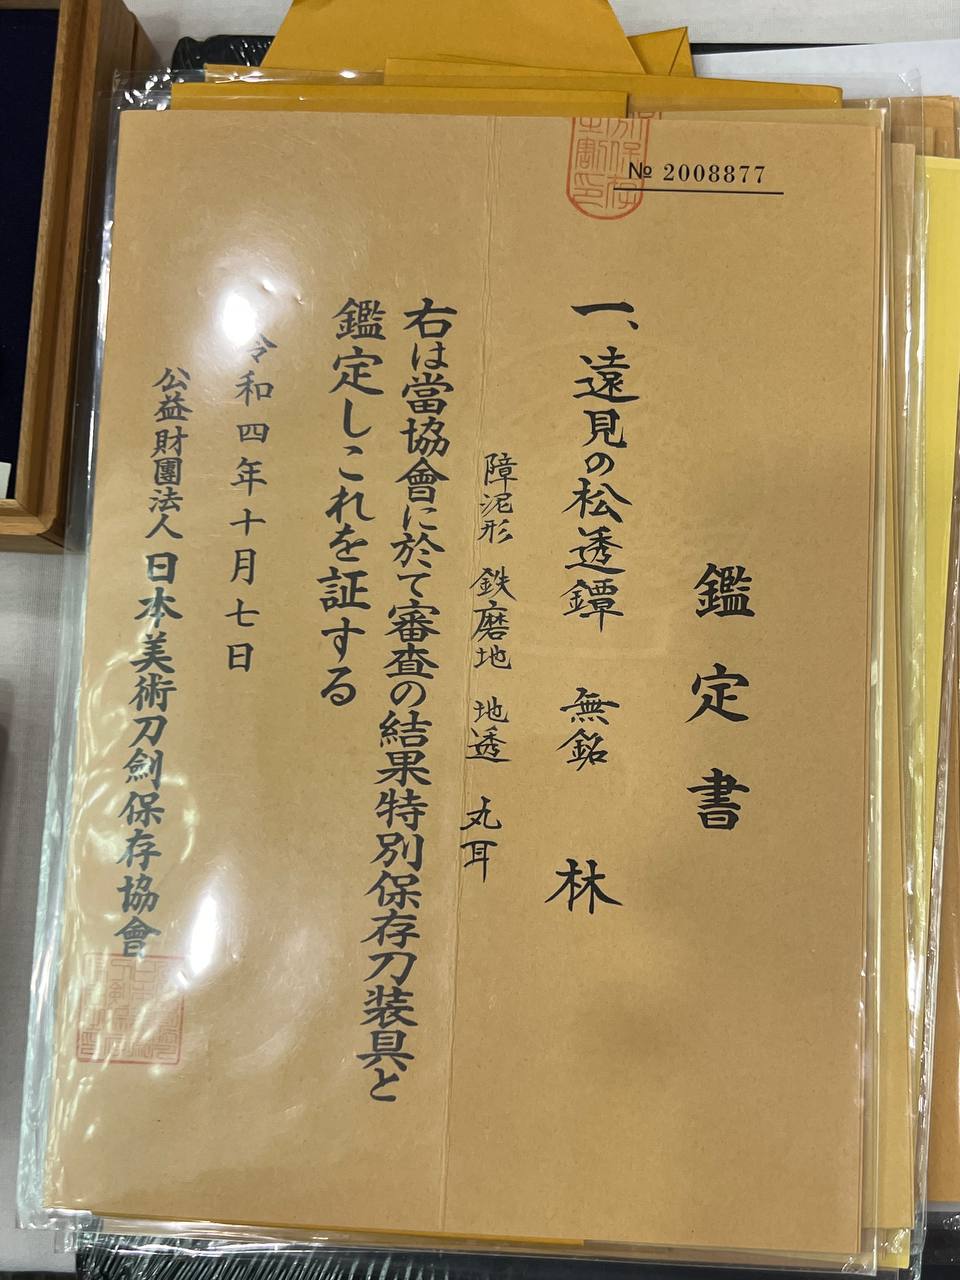 № 2008877
鑑定書
一、遠見の松透鐔 無銘 林
障泥形 鉄磨地 地透 丸耳
右は當協會に於て審査の結果特別保存刀装具と
鑑定しこれを証する
令和四年十月七日
公益財團法人 日本美術刀劍保存協會